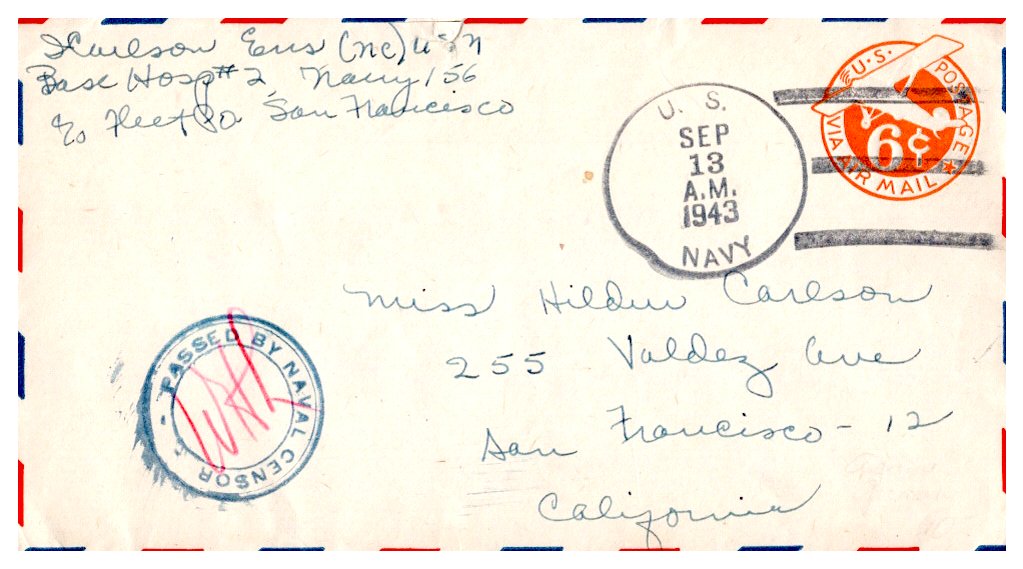 H Carlson Ens (NC) USN
Base Hosp # 2, Navy 156
c/o Fleet PO San Francisco
U. S.
SEP
13
A.M.
1943
NAVY
U.S. POSTAGE
6¢
VIA AIR MAIL
Miss Hildur Carlson
255 Valdez Ave
San Francisco - 12
California
PASSED BY NAVAL CENSOR